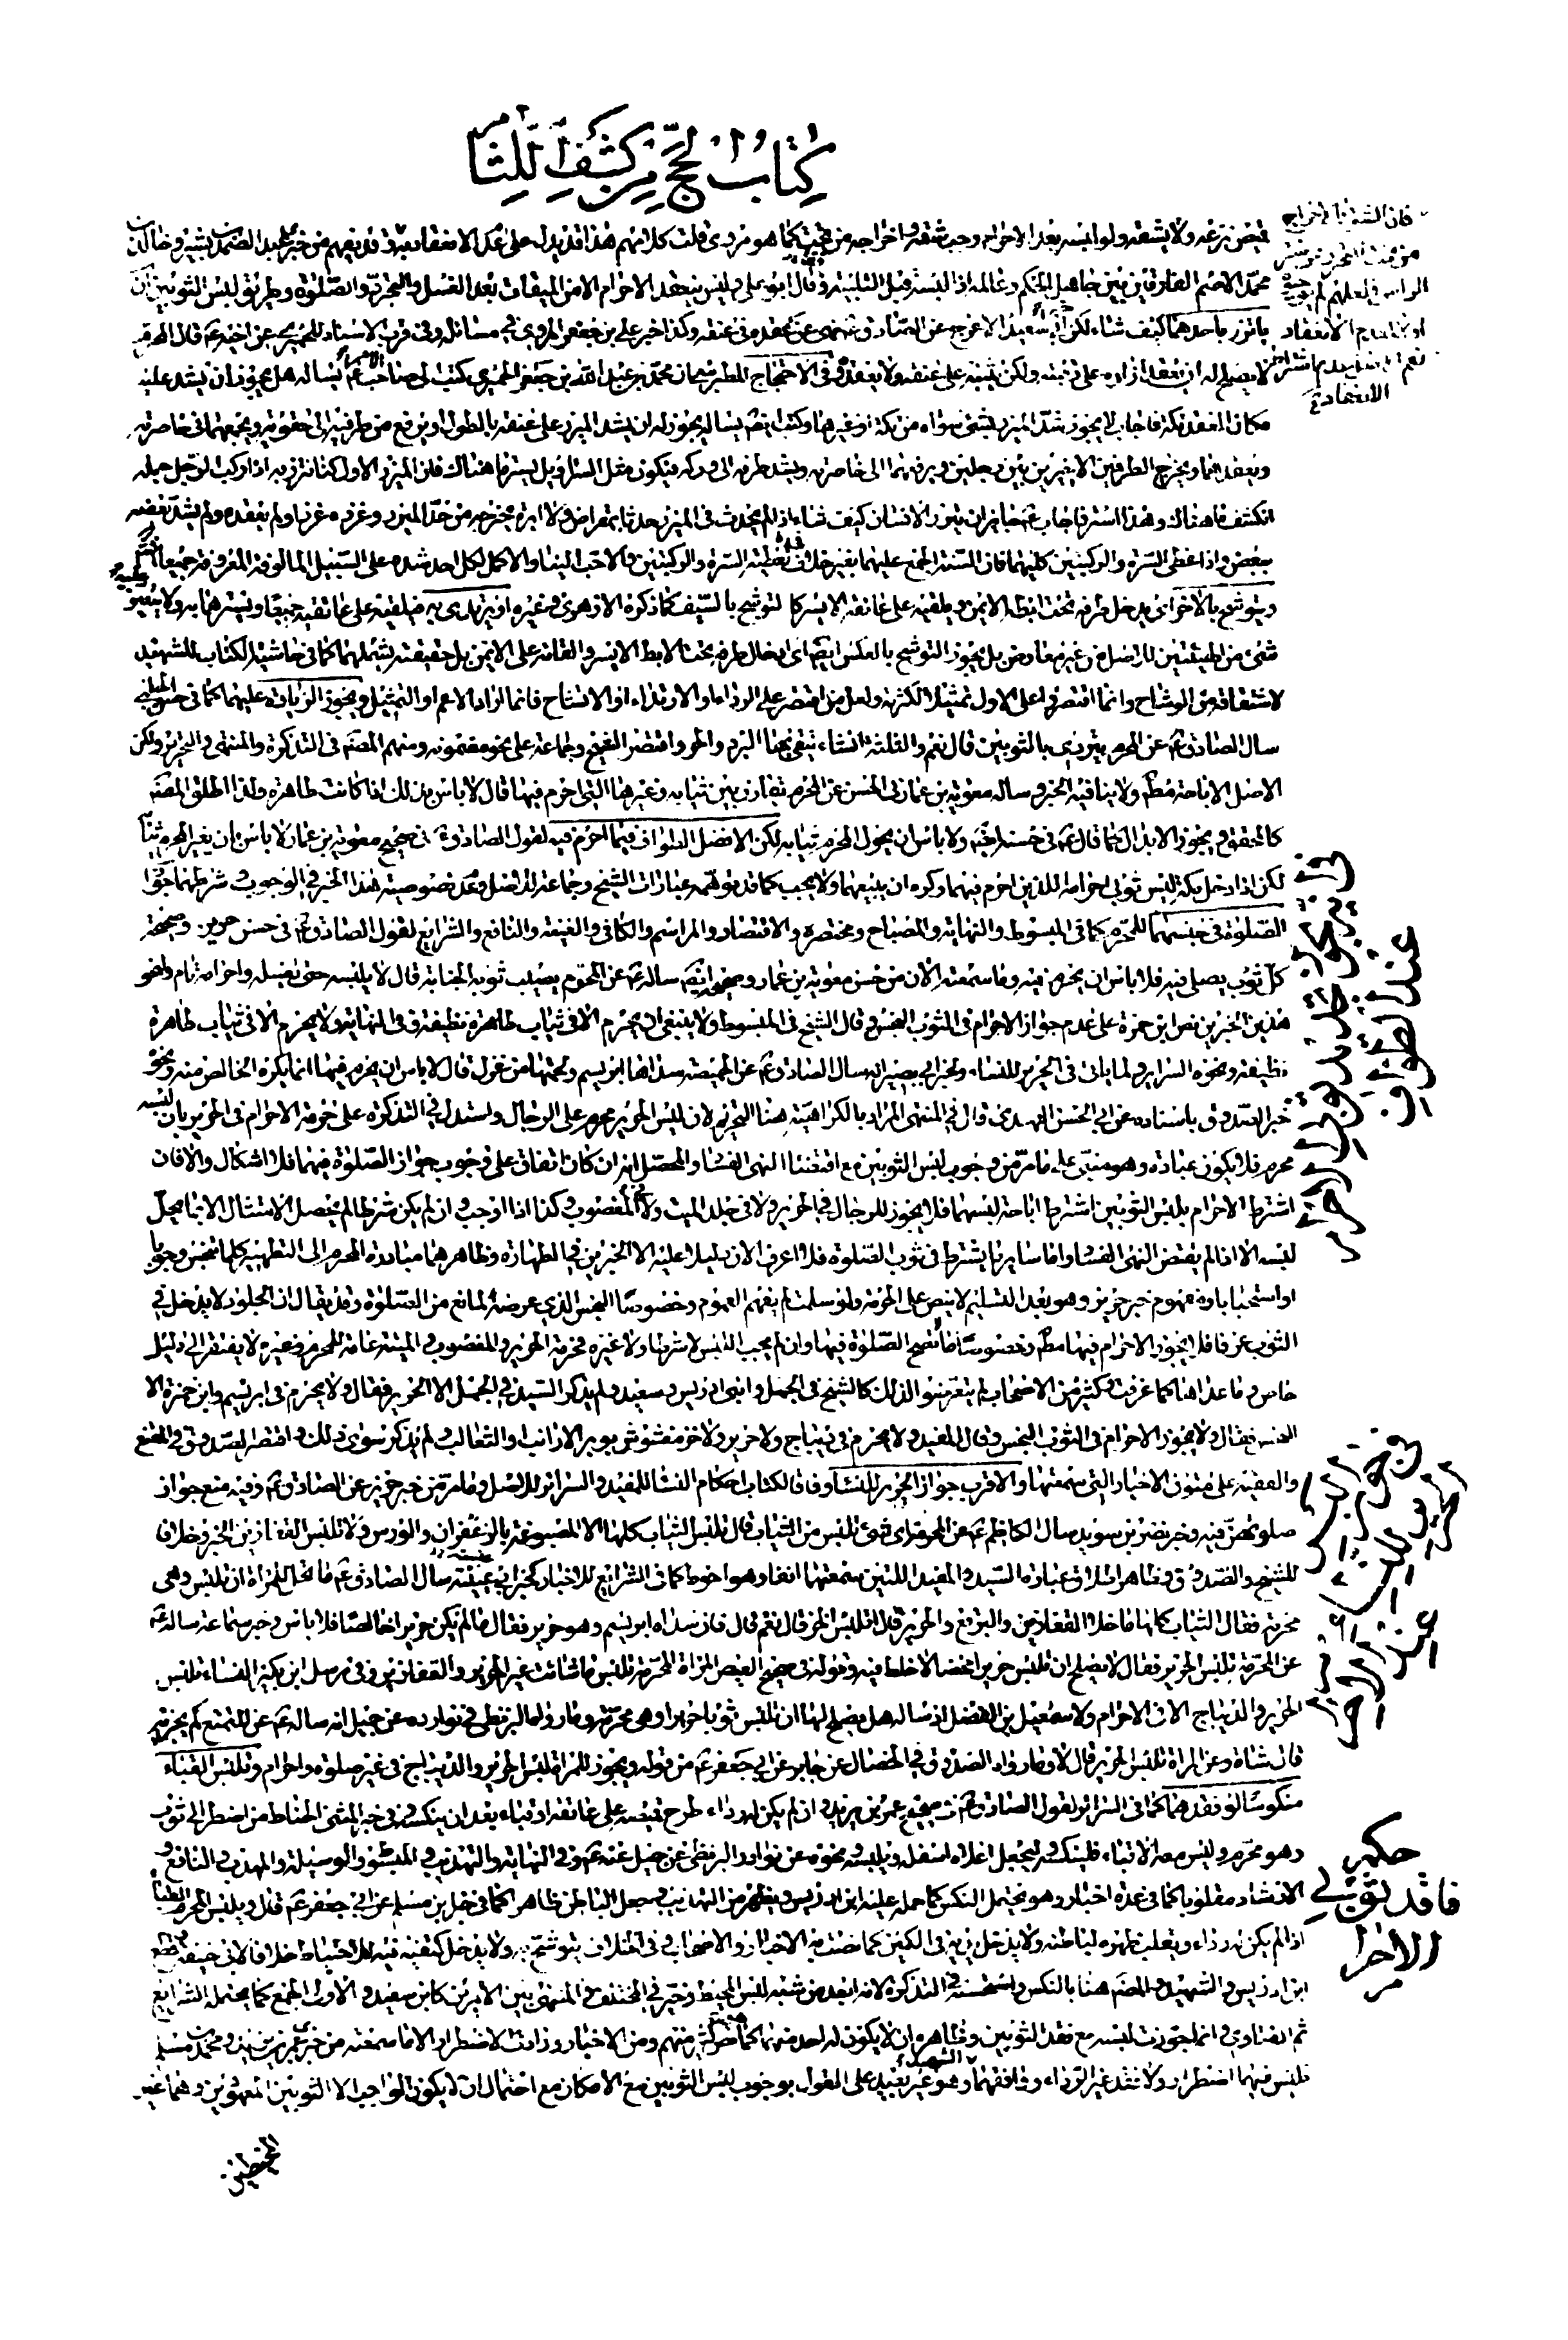 كتاب الحج من كشف اللثام
قميص نزعه ولا يشقه ولو لبسه بعد الاحرام وجب شقه واخراجه من تحت كما هو مروي قلت كلامهم هذا قد يدل على عدم الانعقاد
محمد الاصم الفارقين بين جاهل الحكم وعالمه اذا لبسه قبل التلبية وقال ابو علي وليس ينعقد الاحرام الا من الميقات بعد الغسل والتجرد والصلوة وطريق لبس الثوبين ان
ياتزر باحدهما كيف شاء لكن سعيد الاعرج عن الصادق نهى عن عقده في عنقه وكذا خبر علي بن جعفر المروي في مسائله وفي قرب الاسناد للحميري عن اخيه قال المحرم
لا يصلح له ان يعقد ازاره على رقبته ولكن يثنيه على عنقه ولا يعقده وفي الاحتجاج للطبرسي ان محمد بن عبد الله بن جعفر الحميري كتب الى صاحب الامر يساله هل يجوز ان يشد عليه
مكان العقد تكة فاجاب لا يجوز شد المئزر بشئ سواه من تكة او غيرها وكتب ايضا يساله يجوز له ان يشد المئزر على عنقه بالطول او يرفع من طرفيه الى حقويه ويجمعهما في خاصرته
ويعقدهما ويخرج الطرفين الاخيرين بين رجليه ويرفعهما الى خاصرته ويشد طرفه الى وركه فيكون مثل السراويل يستر ما هناك فان المئزر الاول كنا نتزر به اذا ركب الرجل جمله
انكشف ما هناك وهذا استر فاجاب جايز ان يتزر الانسان كيف شاء اذا لم يحدث في المئزر حدثا بمقراض ولا ابرة يخرجه من حد المئزر وغرزه غرزا ولم يعقده ولم يشد بعضه
ببعض واذا غطى السرة والركبتين كليهما فان السنة المجمع عليها بغير خلاف تغطية السرة والركبتين والاحب الينا والاكمل لكل احد شده على السبيل المالوفة المعروفة جميعا
ويتوشح بالاخر اي يدخل طرفه تحت ابطه الايمن ويلقيه على عاتقه الايسر كالتوشح بالسيف كما ذكره الازهري وغيره او يرتدي به فيلقيه على عاتقيه جميعا ويسترهما به ولا يتعين
شئ من الهيئتين للاصل من غير معارض بل يجوز التوشح بالعكس ايضا اي ادخال طرفه تحت الابط الايسر والقائه على الايمن بل حقيقته يشملهما كما في حاشية الكتاب للشهيد
لاشتقاقه من الوشاح وانما اقتصروا على الاول تمثيلا لكثرته ولعل من اقتصر على الرداء والارتداء او الاتشاح فانما اراد الاعم او التمثيل ويجوز الزيادة عليهما كما في حسن الحلبي
سال الصادق عن المحرم يتردى بالثوبين قال نعم والثلثة ان شاء يتقي بها البرد والحر واقتصر الشيخ وجماعة على نحو مضمونه ومنهم المصنف في التذكرة والمنتهى والتحرير ولكن
الاصل الاباحة مطلقا ولا ينافيه الخبر وساله معوية بن عمار في الحسن عن المحرم يقارن بين ثيابه وغيرها التي احرم فيها قال لا باس بذلك اذا كانت طاهرة ولذا اطلق المصنف
كالمحقق ويجوز الابدال كما قال في حسنة الحلبي ولا باس ان يحول المحرم ثيابه لكن الافضل الطواف فيما احرم فيه لقول الصادق في صحيح معوية بن عمار لا باس بان يغير المحرم ثيابه
لكن اذا دخل مكة لبس ثوبي احرامه اللذين احرم فيهما وكره ان يبيعهما ولا يجب كما قد يوهمه عبارات الشيخ وجماعة للاصل وعدم خصوصية هذا الخبر في الوجوب وشرطهما جواز
الصلوة في جنسهما للمحرم كما في المبسوط والنهاية والمصباح ومختصره والاقتصاد والمراسم والكافي والغنية والنافع والشرايع لقول الصادق في حسن حريز وصحيحه
كل ثوب يصلى فيه فلا باس ان يحرم فيه وما سمعته الان من حسن معوية بن عمار وصحيحه ايضا ساله عن المحرم يصيب ثوبه الجنابة قال لا يلبسه حتى يغسله واحرامه تام ولنحو
هذين الخبرين نص ابن حمزة على عدم جواز الاحرام في الثوب النجس وقال الشيخ في المبسوط ولا ينبغي ان يحرم الا في ثياب طاهرة نظيفة وفي النهاية ولا يحرم الا في ثياب طاهرة
نظيفة ونحوه السراير ولما ياتي في الحرير للنساء ولخبر ابي بصير انه سال الصادق عن الخميصة سداها ابريسم ولحمتها من غزل قال لا باس ان يحرم فيها انما يكره الخالص منه ونحو
خبر الصدوق باسناده عن ابي الحسن النهدي قال في المنتهى المراد بالكراهية هنا التحريم لان لبس الحرير محرم على الرجال واستدل في التذكرة على حرمة الاحرام في الحرير بان لبسه
محرم فلا يكون عبادة وهو مبني على ما مر من وجوب لبس الثوبين مع اقتضاء النهي الفساد والمحصل انه ان كان اتفاق على وجوب جواز الصلوة فيهما فلا اشكال والا فان
اشترط الاحرام بلبس الثوبين اشترط اباحة لبسهما فلا يجوز للرجال في الحرير ولا في جلد الميت ولا المغصوب وكذا اذا وجب وان لم يكن شرطا لم يحصل الامتثال الا بما يحل
لبسه الا اذا لم يقتض النهي الفساد واما ساير ما يشترط في ثوب الصلوة فلا اعرف الان دليلا عليه الا الخبرين في الطهارة وظاهرهما مبادرة المحرم الى التطهير كلما تنجس وجوبا
او استحبابا ومفهوم خبر حريز وهو بعد التسليم لا ينص على الحرمة ولو سلمت لم يفهم العموم وخصوصا النجس الذي عرضه المانع من الصلوة وقد يقال ان الجلود لا يدخل في
الثوب عرفا فلا يجوز الاحرام فيها مطلقا وخصوصا ما لا تصح الصلوة فيها وان لم يجب اللبس لا شرطا ولا غيره فحرمة الحرير والمغصوب والميتة عامة للمحرم وغيره لا يفتقر الى دليل
خاص وما عداها كما عرفت فكثير من الاصحاب لم يتعرضوا لذلك كالشيخ في الجمل وابني ادريس وسعيد ولم يذكر السيد في الجمل الا الحرير فقال ولا يحرم في ابريسم وابن حمزة الا
النجس فقال ولا يجوز الاحرام في الثوب النجس وقال المفيد ولا يحرم في ديباج ولا حرير ولا خز مغشوش بوبر الارانب او الثعالب ولم يذكر سوى ذلك واقتصر الصدوق في المقنع
والفقيه على متون الاخبار التي سمعتها والاقرب جواز الحرير للنساء وفاقا لكتاب احكام النساء للمفيد والسراير للاصل وما مر من خبر حريز عن الصادق وفيه منع جواز
صلوتهن فيه وخبر نضر بن سويد سال الكاظم عن المحرمة اي شئ تلبس من الثياب قال تلبس الثياب كلها الا المصبوغة بالزعفران والورس ولا تلبس القفازين الخبر وخلافا
للشيخ والصدوق وظاهر اطلاق عبارة السيد والمفيد اللتين سمعتهما انفا وهو احوط كما في الشرايع للاخبار كخبر ابي عيينة سال الصادق ما تحل للمراة ان تلبس وهي
محرمة فقال الثياب كلها ما خلا القفازين والبرقع والحرير قال اتلبس الخز قال نعم قال فان سداه ابريسم وهو حرير فقال ما لم يكن حريرا خالصا فلا باس وخبر سماعة ساله
عن المحرمة تلبس الحرير فقال لا يصلح ان تلبس حريرا محضا لا خلط فيه وقوله في صحيح العيص المراة المحرمة تلبس ما شاءت غير الحرير والقفازين وفي مرسل ابن بكير النساء تلبس
الحرير والديباج الا في الاحرام ولاسمعيل بن الفضل اذ ساله هل يصلح لها ان تلبس ثوبا حريرا وهي محرمة وما رواه البزنطي في نوادره عن جميل انه ساله عن المتمتع كم يجزيه
قال شاة وعن المراة تلبس الحرير قال لا وما رواه الصدوق في الخصال عن جابر عن ابي جعفر من قوله ويجوز للمراة لبس الحرير والديباج في غير صلوة واحرام وتلبس القباء
منكوسا لو فقدهما كما في السراير لقول الصادق في صحيح عمر بن يزيد وان لم يكن له رداء طرح قميصه على عاتقه او قباء بعد ان ينكسه وفي خبر المثنى الحناط من اضطر الى ثوب
وهو محرم وليس معه الا قباء فلينكسه وليجعل اعلاه اسفله ويلبسه ونحوه عن نوادر البزنطي عن جميل عنه وفي النهاية والتهذيب والمبسوط والوسيلة والمهذب والنافع و
الارشاد مقلوبا كما في عدة اخبار وهو يحتمل النكس كما حمله عليه ابن ادريس ويظهر من التهذيب وجعل الباطن ظاهرا كما في خبر ابن مسلم عن ابي جعفر قال ويلبس المحرم القباء
اذا لم يكن له رداء ويقلب ظهره لباطنه ولا يدخل يديه في الكمين كما نصت به الاخبار والاصحاب وفي الخلاف يتوشح به ولا يدخل كتفيه فيه للاحتياط خلافا لابي حنيفة وقطع
ابن ادريس والشهيد والمصنف هنا بالنكس واستحسنه في التذكرة لانه ابعد من شبه لبس المخيط وخير في المختلف والمنتهى بين الامرين كابن سعيد والاولى الجمع كما يحتمله الشرايع
ثم الفتاوى انما جوزت لبسه مع فقد الثوبين وظاهره ان لا يكون له احد منهما كما صرح به كثير منهم ومن الاخبار وزادت الاضطرار الا ما سمعته من خبري عمر بن يزيد ومحمد بن مسلم
فليس فيهما اضطرار ولا فقد غير الرداء ووافقهما الشهيد وهو غير بعيد على القول بوجوب لبس الثوبين مع الامكان مع احتمال ان لا يكون الواجب الا الثوبين المعهودين وهما غير
المخيطين
عند الطواف
في جواز لبس
الحرير للنساء
حكم
فاقد ثوبي
الاحرام